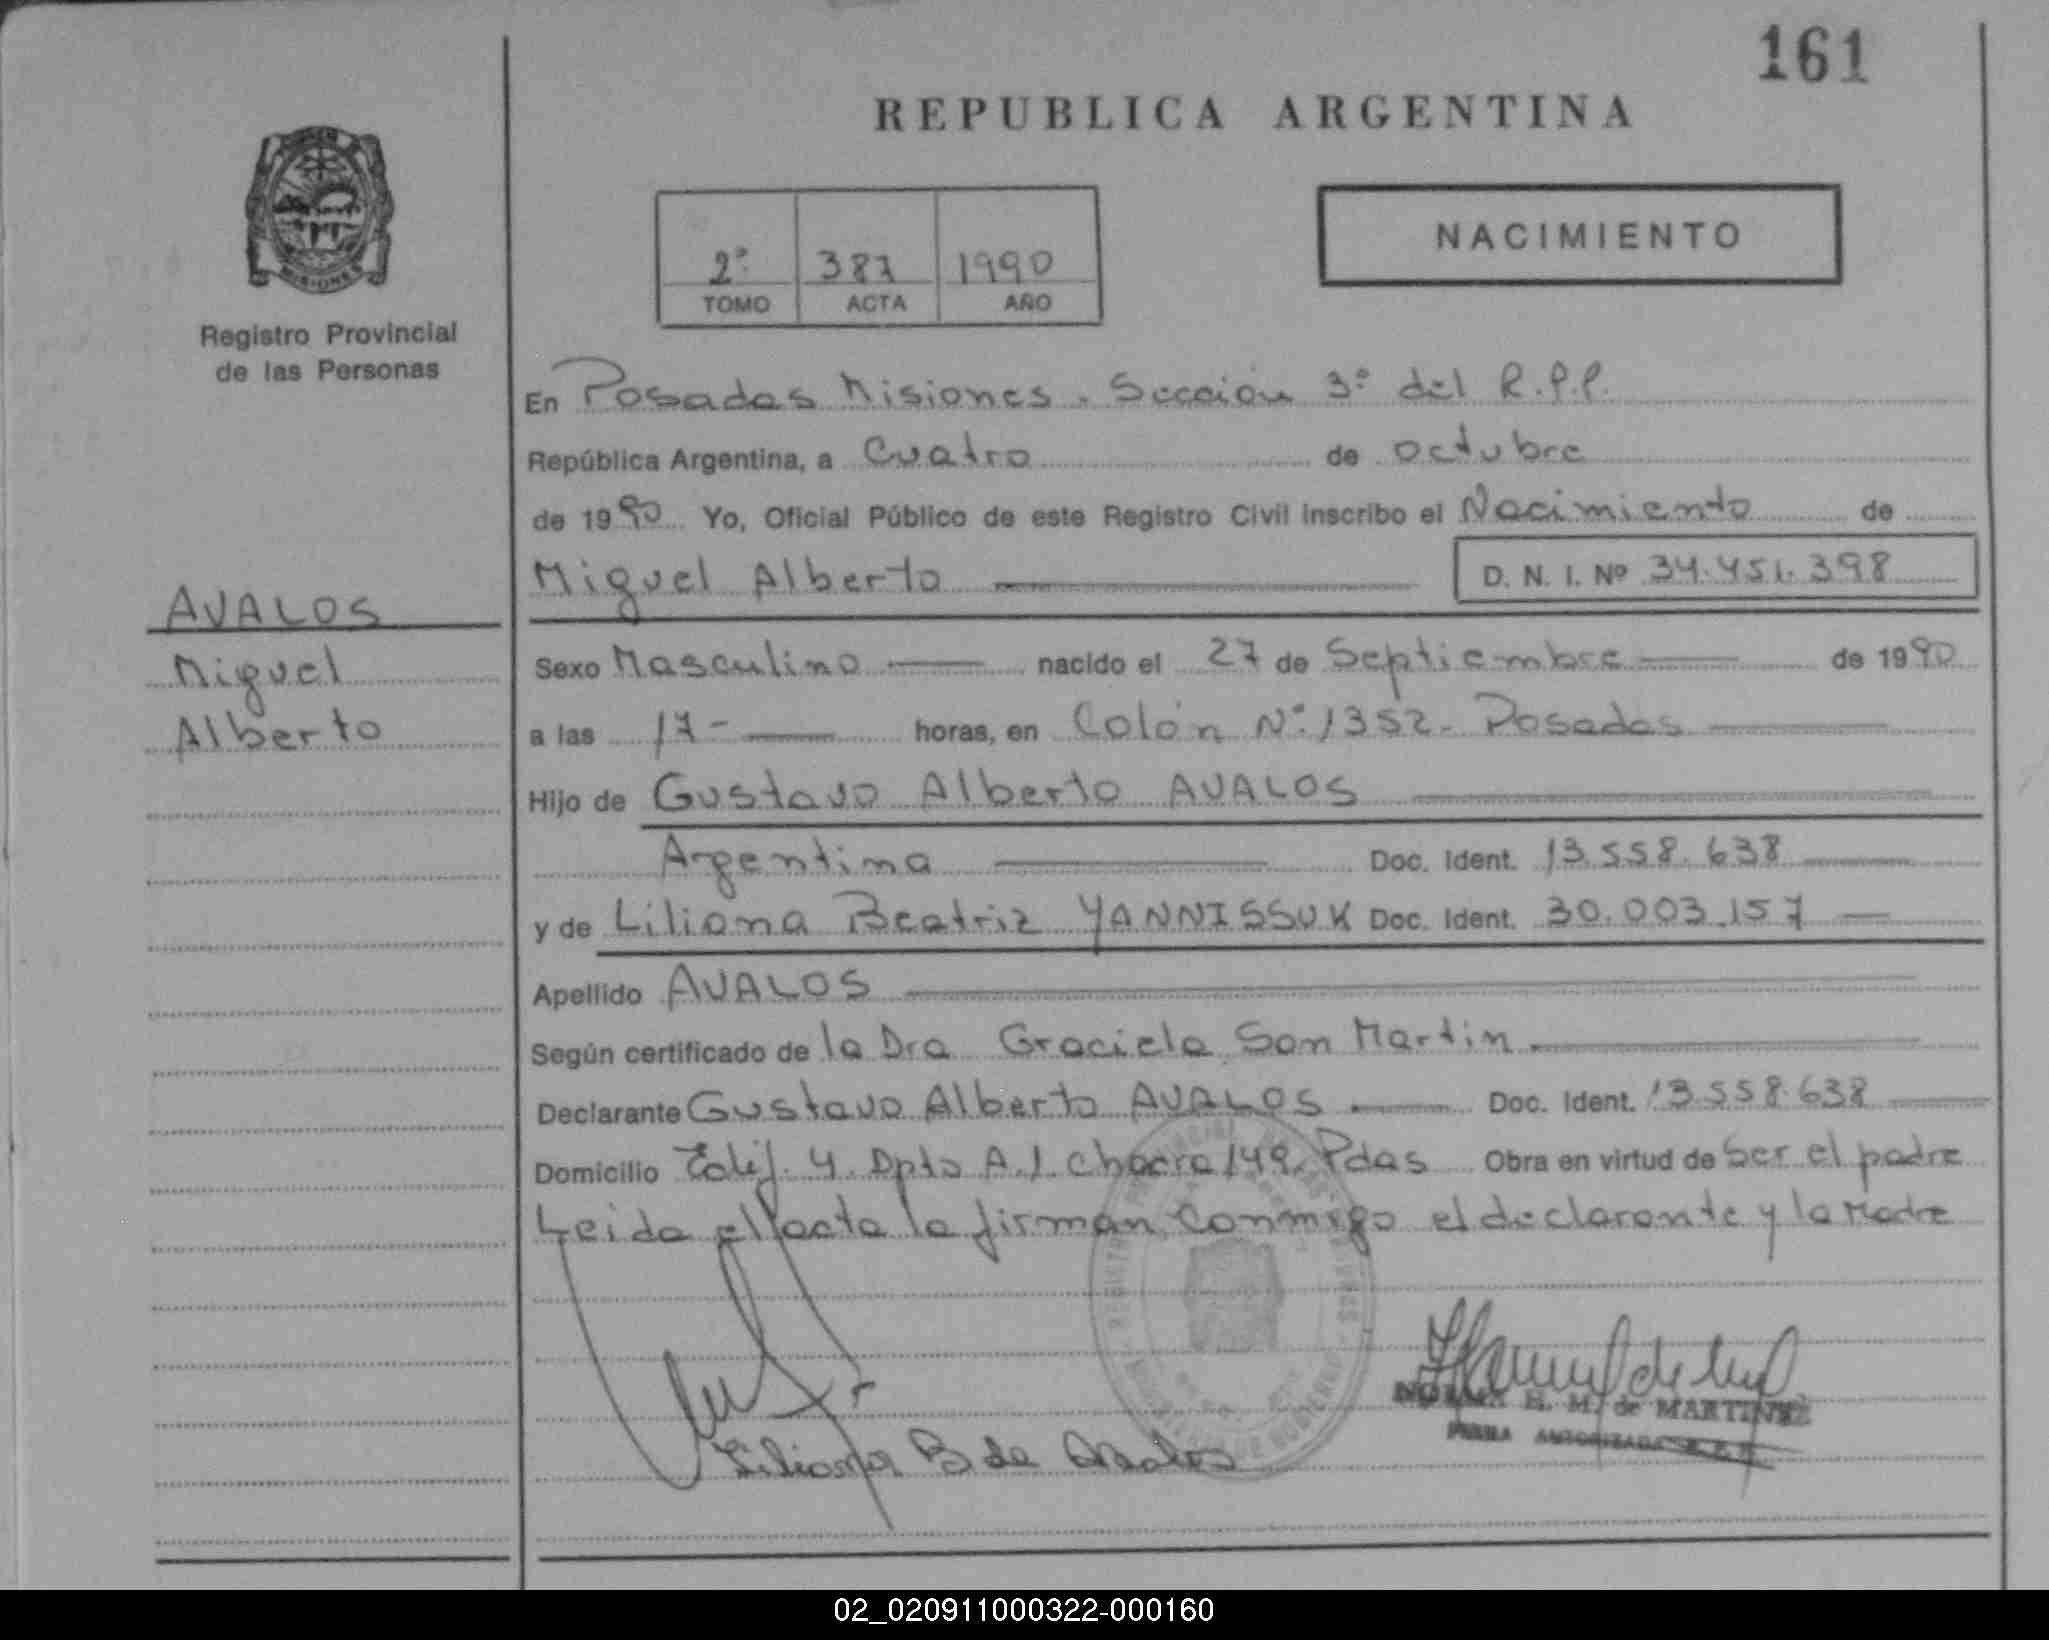 161
REPUBLICA ARGENTINA
MISIONES
Registro Provincial
de las Personas
2º 387 1990
TOMO ACTA AÑO
NACIMIENTO
En Posadas Misiones. Sección 3º del R.P.P.
República Argentina, a Cuatro de octubre
de 1990 Yo, Oficial Público de este Registro Civil inscribo el Nacimiento de
Miguel Alberto D. N. I. Nº 34.451.398
AVALOS
Miguel
Alberto
Sexo Masculino nacido el 27 de Septiembre de 1990
a las 17- horas, en Colón Nº 1352- Posadas
Hijo de Gustavo Alberto AVALOS
Argentina Doc. Ident. 13.558.638
y de Liliana Beatriz YANNISSUK Doc. Ident. 30.003.157
Apellido AVALOS
Según certificado de la Dra Graciela San Martin
Declarante Gustavo Alberto AVALOS Doc. Ident. 13.558.638
Domicilio Edif. 4 Dpto A.1 chacra 149. Pdas Obra en virtud de Ser el padre
Leida el acta la firman conmigo el declarante y la Madre
Liliana B de Avalos
NORMA H. M. de MARTINEZ
FIRMA AUTORIZADA
02_020911000322-000160